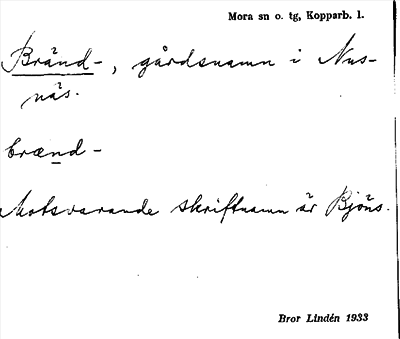 Mora sn o. tg, Kopparb. l.
Bränd-, gårdsnamn i Nus-
näs.
brænd-
Motsvarande skriftnamn är Bjöns.
Bror Lindén 1933